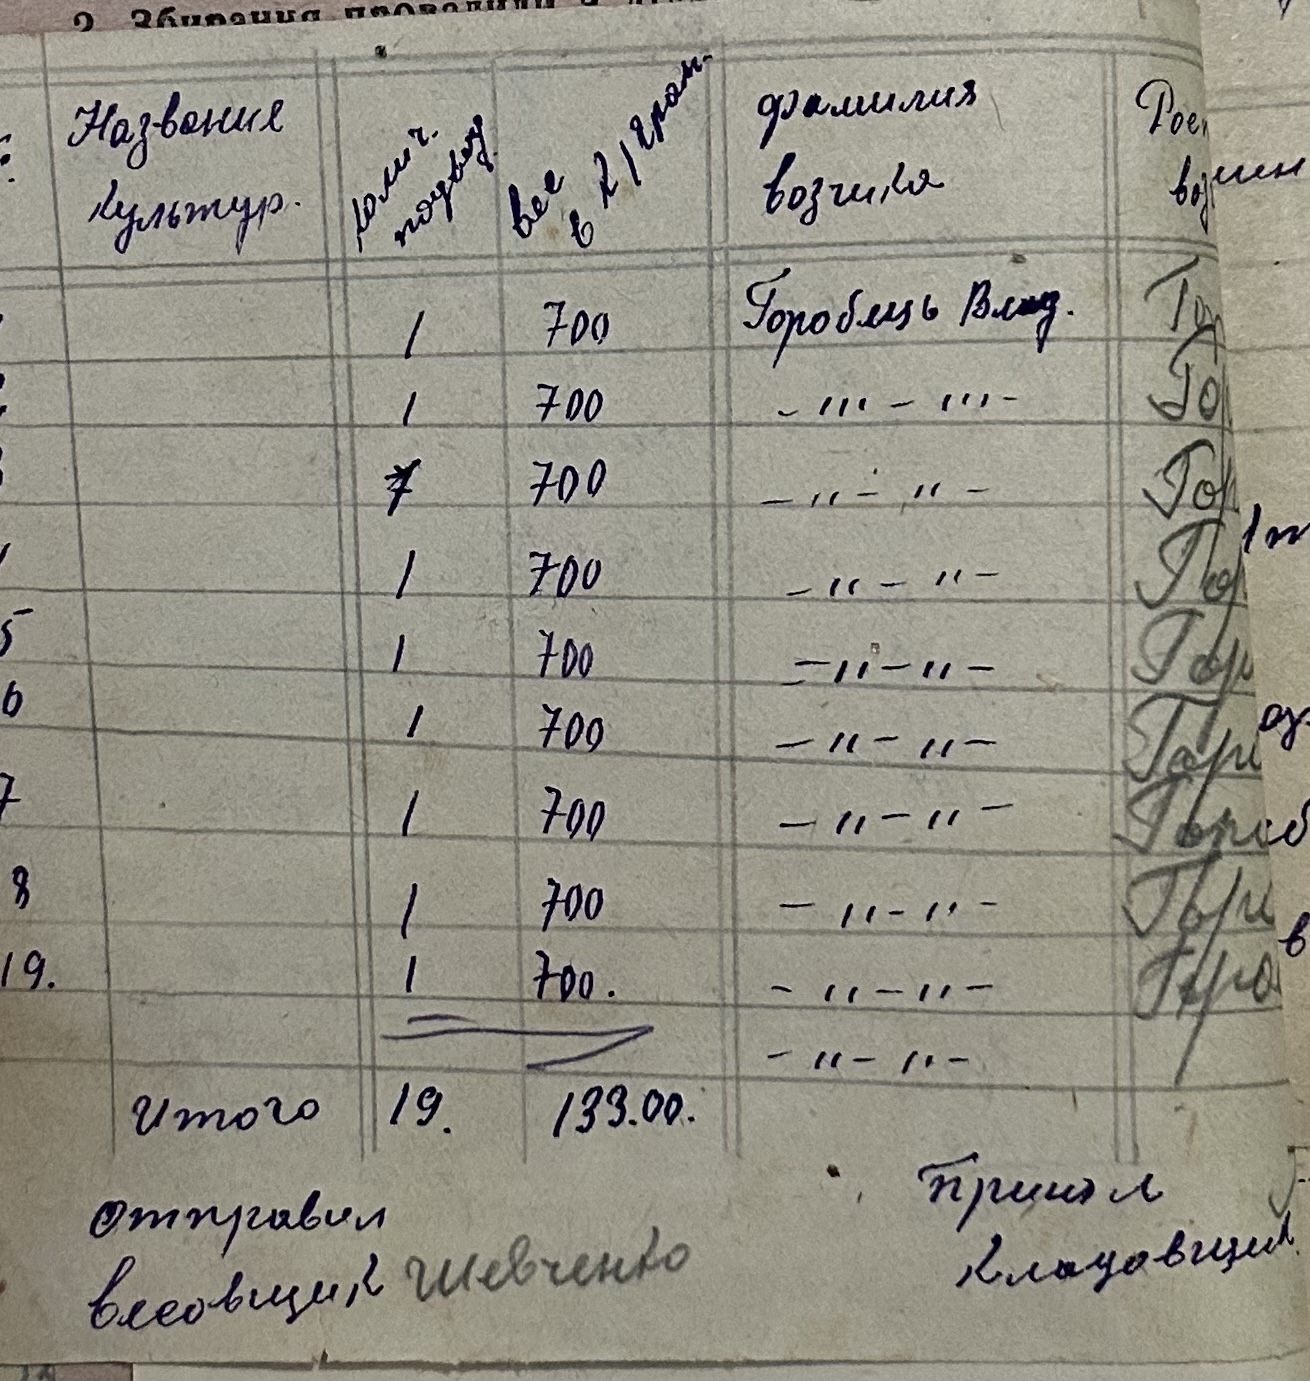 2. Збирання провадили з
Названия культур. колич. подвод. вес в К/грам. фамилия возчика Рос возчик
1 700 Горобець Влад. Го
1 700 -"'-"'- Го
1 700 -"-"- Гор
1 700 -"-"- Гор
5 1 700 -"-"- Гор
6 1 700 -"-"- Гор
7 1 700 -"-"- Гороб
8 1 700 -"-"- Гор
19. 1 700. -"-"- Горо
-"-"-
Итого 19. 133.00.
Отправил Принял
весовщик Шевченко Кладовщик